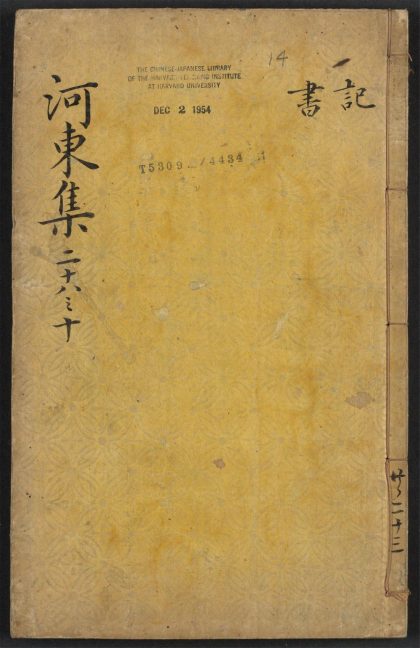 記
書
14
THE CHINESE-JAPANESE LIBRARY
OF THE HARVARD-YENCHING INSTITUTE
AT HARVARD UNIVERSITY
DEC 2 1954
T5309 /4434
河東集 二十八之十
二十三